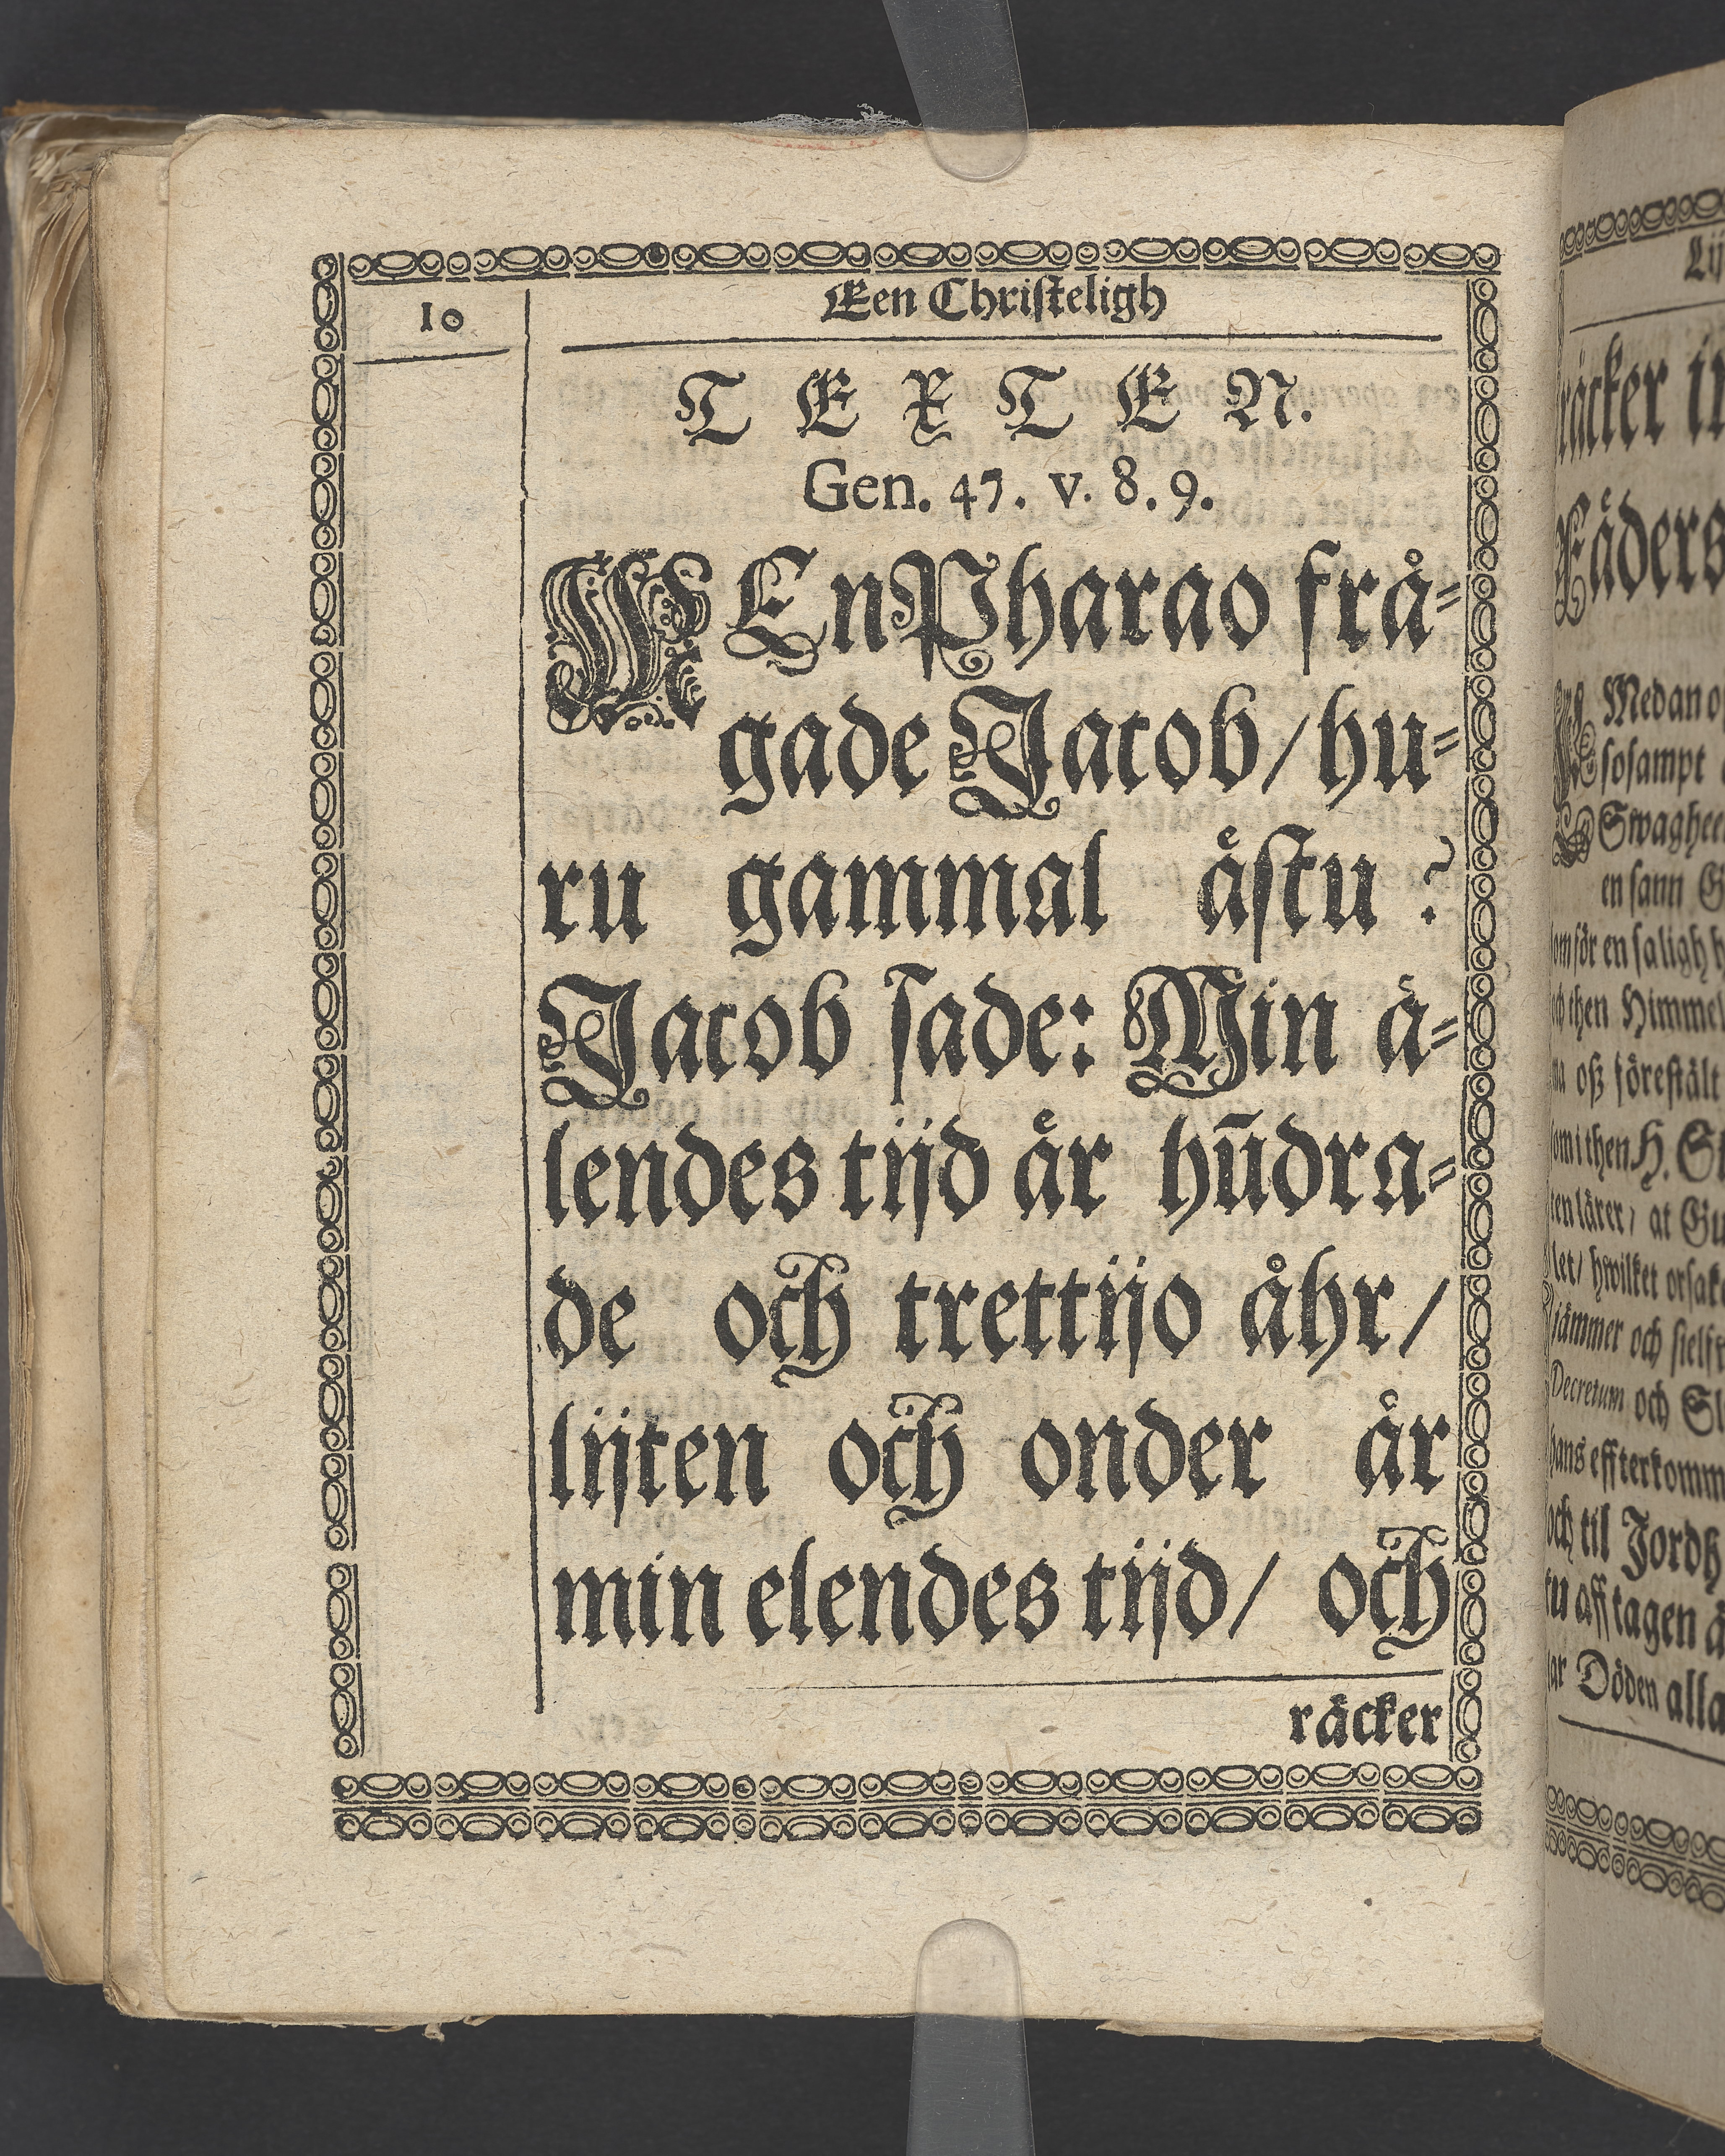 10
Een Christeligh
TEXTEN.
Gen. 47. v. 8. 9.
MEn Pharao frå=
gade Jacob/ hu=
ru gammal ästu?
Jacob sade: Min ä=
lendes tijd är hūdra=
de och trettijo åhr/
lijten och onder är
min elendes tijd/ och
räcker
räcker
Fäders
Medan
sosampt
en sann
för en saligh
then Himmel
oß förestält
i then H.
lärer/ at
hwilket
jämmer och
Decretum och
effterkomm
och til Jordh
aff tagen
Döden alla